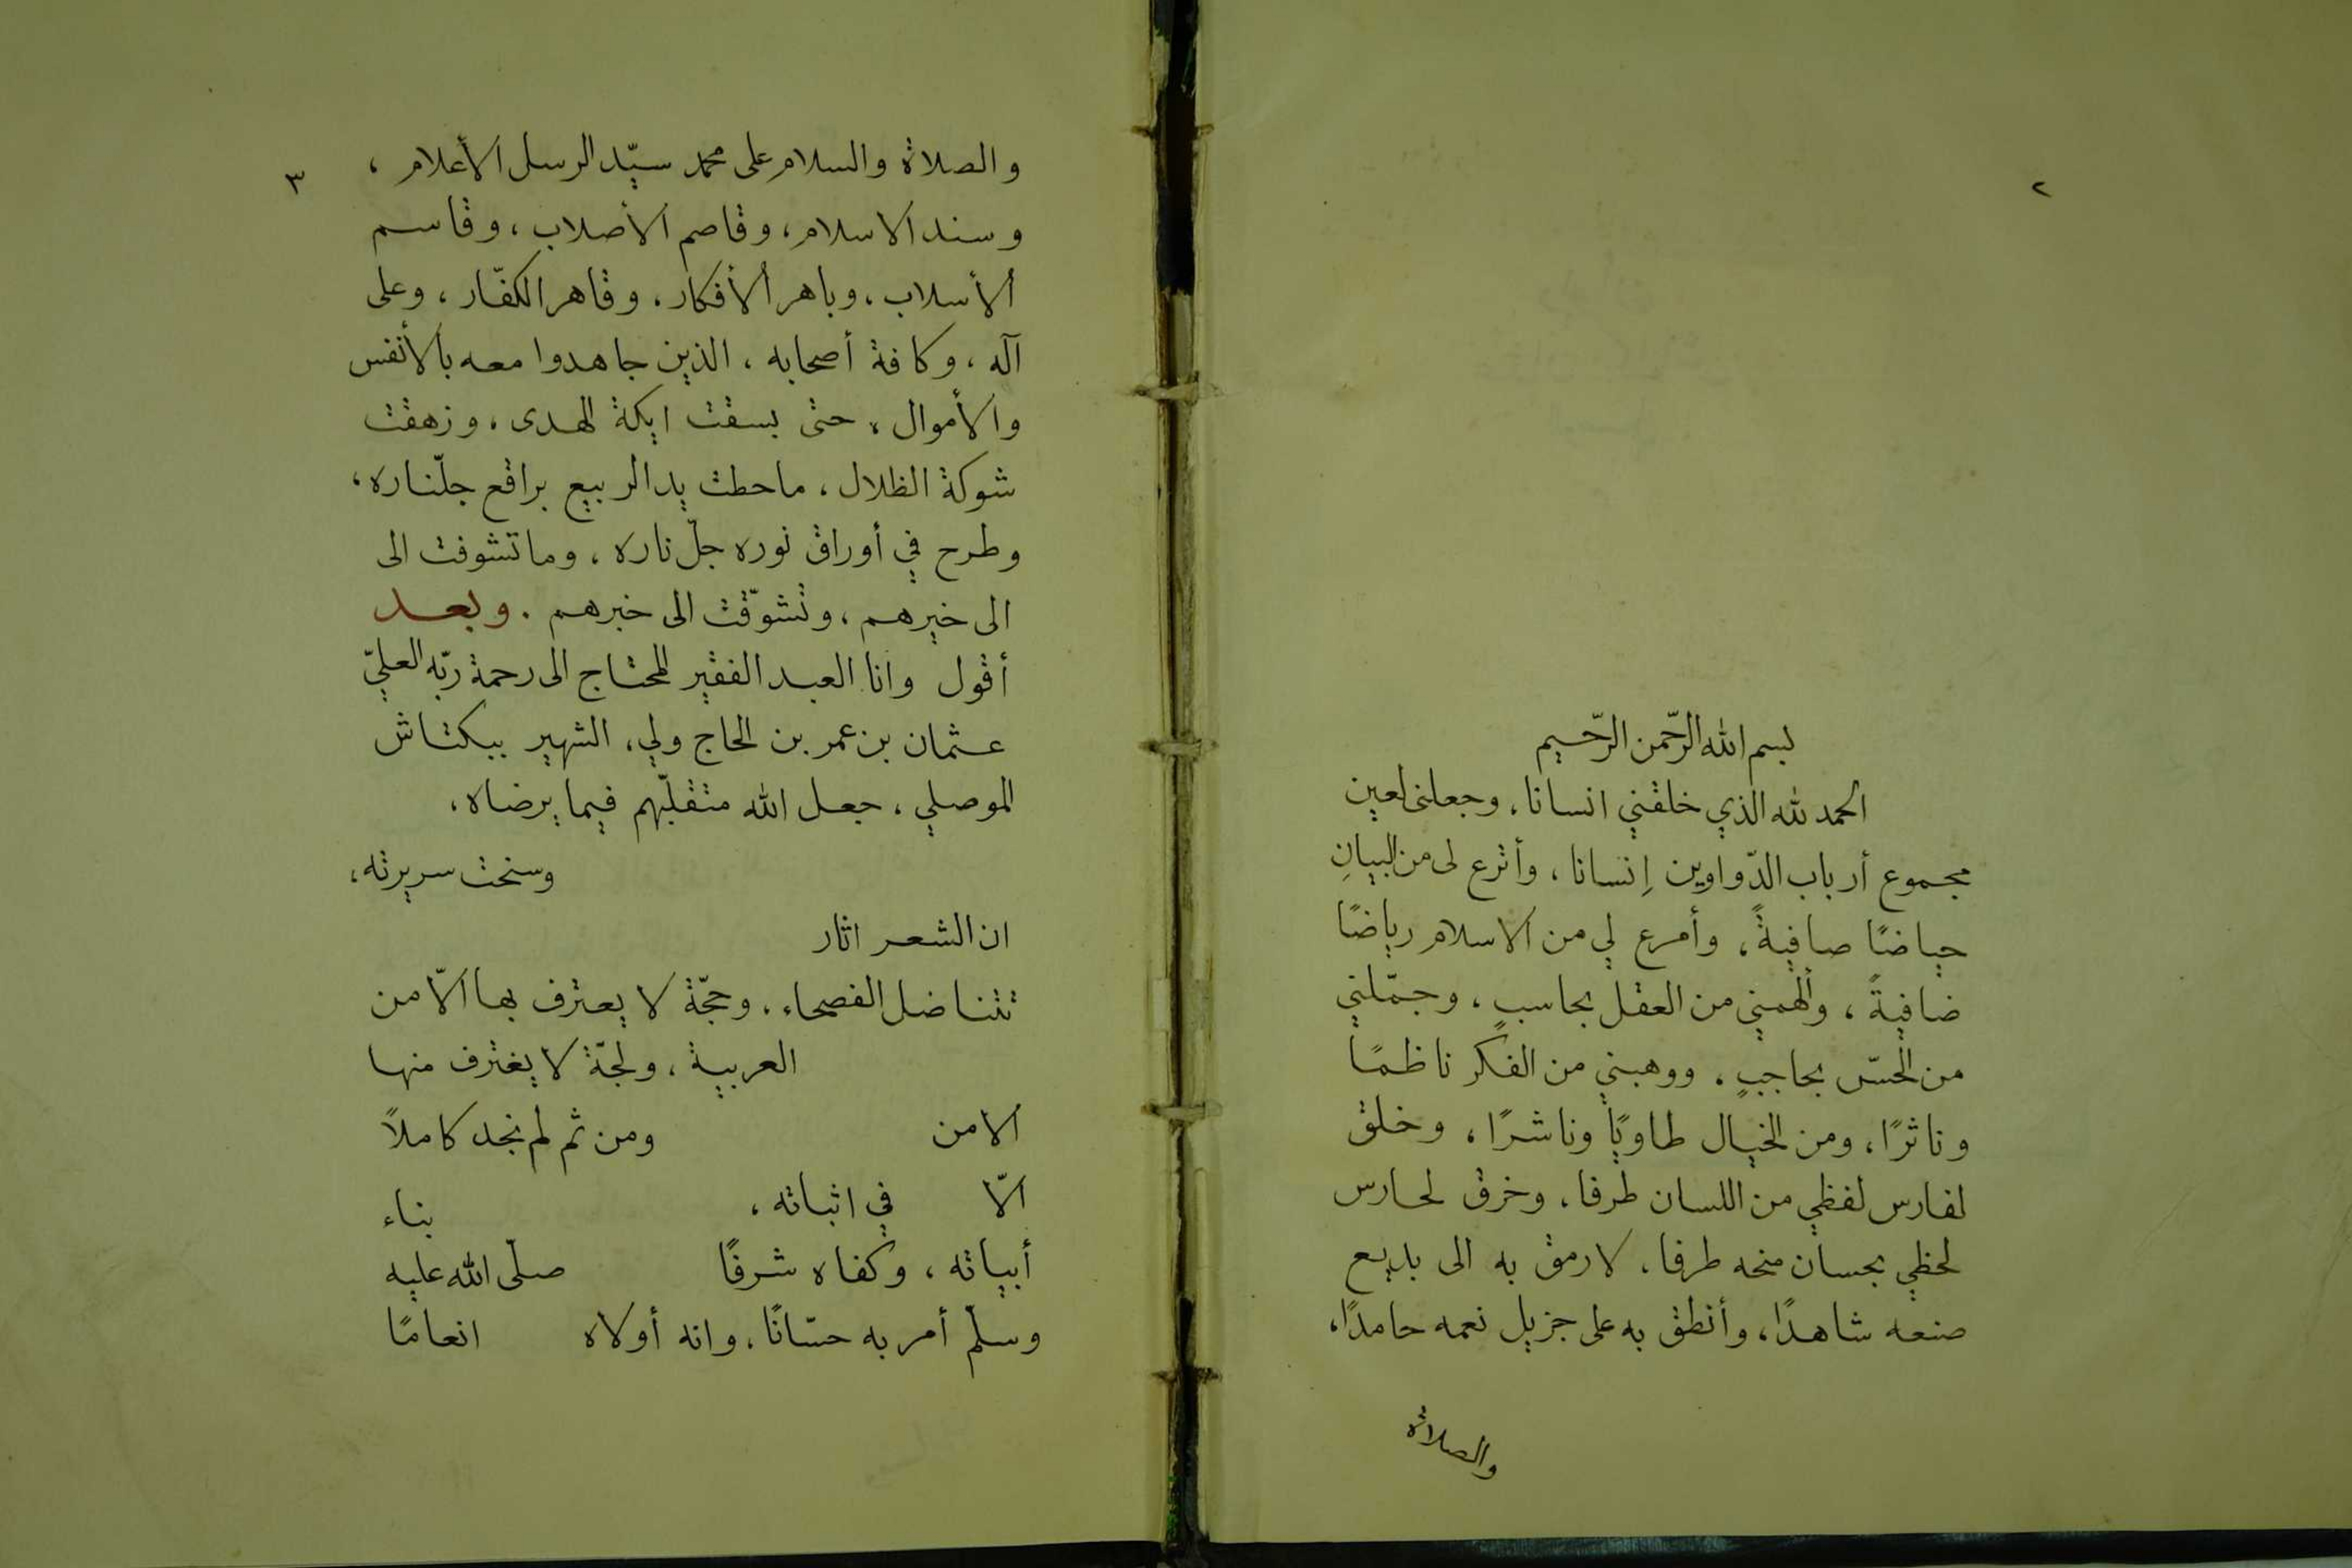 ٢
بسم الله الرّحمن الرّحيم
الحمد لله الذي خلقني انسانا، وجعلنى لعين
مجموع أرباب الدّواوين إنسانا، وأترع لى من البيانِ
حياضًا صافيةً، وأمرع لي من الاسلام رياضًا
ضافيةً، وألهمني من العقل بحاسبٍ، وجمّلني
من الحسّ بحاجبٍ، ووهبني من الفكر ناظمًا
وناثرًا، ومن الخيال طاويًا وناشرًا، وخلق
لفارس لفظي من اللسان طرفا، وخرق لحارس
لحظي بحسان منحه طرفا، لارمق به الى بديع
صنعه شاهدًا، وأنطق به على جزيل نعمه حامدًا،
والصلاة
٣
والصلاة والسلام على محمد سيّد الرسل الأعلام،
وسند الاسلام، وقاصم الأصلاب، وقاسم
الأسلاب، وباهر الأفكار، وقاهر الكفّار، وعلى
آله، وكافة أصحابه، الذين جاهدوا معه بالأنفس
والأموال، حتى بسقت ايكة الهدى، وزهقت
شوكة الظلال، ماحطت يد الربيع براقع جلّناره،
وطرح في أوراق نوره جلّ ناره، وما تشوفت الى
الى خيرهم، وتشوّقت الى خبرهم. وبعد
أقول وانا العبد الفقير المحتاج الى رحمة ربّه العليّ
عثمان بن عمر بن الحاج ولي، الشهير ببكتاش
الموصلي، جعل الله متقلّبهم فيما يرضاه،
وسنحت سريرته،
ان الشعر اثار
تتناضل الفصحاء، وحجّة لا يعترف بها الّا من
العربية، ولجّة لا يغترف منها
الا من ومن ثم لم نجد كاملاً
الّا في اثباته، بناء
أبياته، وكفاه شرفًا صلّى الله عليه
وسلّم أمر به حسّانًا، وانه أولاه انعامًا